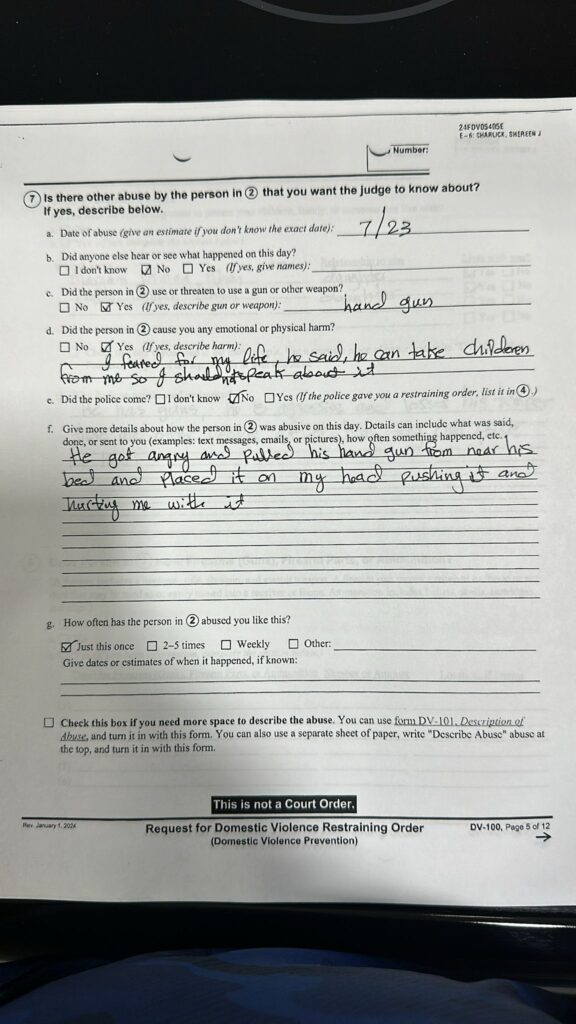 24FDV05405E
E-6: CHARLICK, SHIREEN J
Number:
7 Is there other abuse by the person in 2 that you want the judge to know about?
If yes, describe below.
a. Date of abuse (give an estimate if you don't know the exact date): 7/23
b. Did anyone else hear or see what happened on this day?
☐ I don't know ☑ No ☐ Yes (If yes, give names):
c. Did the person in 2 use or threaten to use a gun or other weapon?
☐ No ☑ Yes (If yes, describe gun or weapon): hand gun
d. Did the person in 2 cause you any emotional or physical harm?
☐ No ☑ Yes (If yes, describe harm):
I feared for my life, he said, he can take childeren
from me so I should not speak about it
e. Did the police come? ☐ I don't know ☑ No ☐ Yes (If the police gave you a restraining order, list it in 4.)
f. Give more details about how the person in 2 was abusive on this day. Details can include what was said,
done, or sent to you (examples: text messages, emails, or pictures), how often something happened, etc.
He got angry and pulled his hand gun from near his
bed and placed it on my head pushing it and
hurting me with it
g. How often has the person in 2 abused you like this?
☑ Just this once ☐ 2–5 times ☐ Weekly ☐ Other:
Give dates or estimates of when it happened, if known:
☐ Check this box if you need more space to describe the abuse. You can use form DV-101, Description of
Abuse, and turn it in with this form. You can also use a separate sheet of paper, write "Describe Abuse" abuse at
the top, and turn it in with this form.
This is not a Court Order.
Rev. January 1, 2024
Request for Domestic Violence Restraining Order
(Domestic Violence Prevention)
DV-100, Page 5 of 12
→